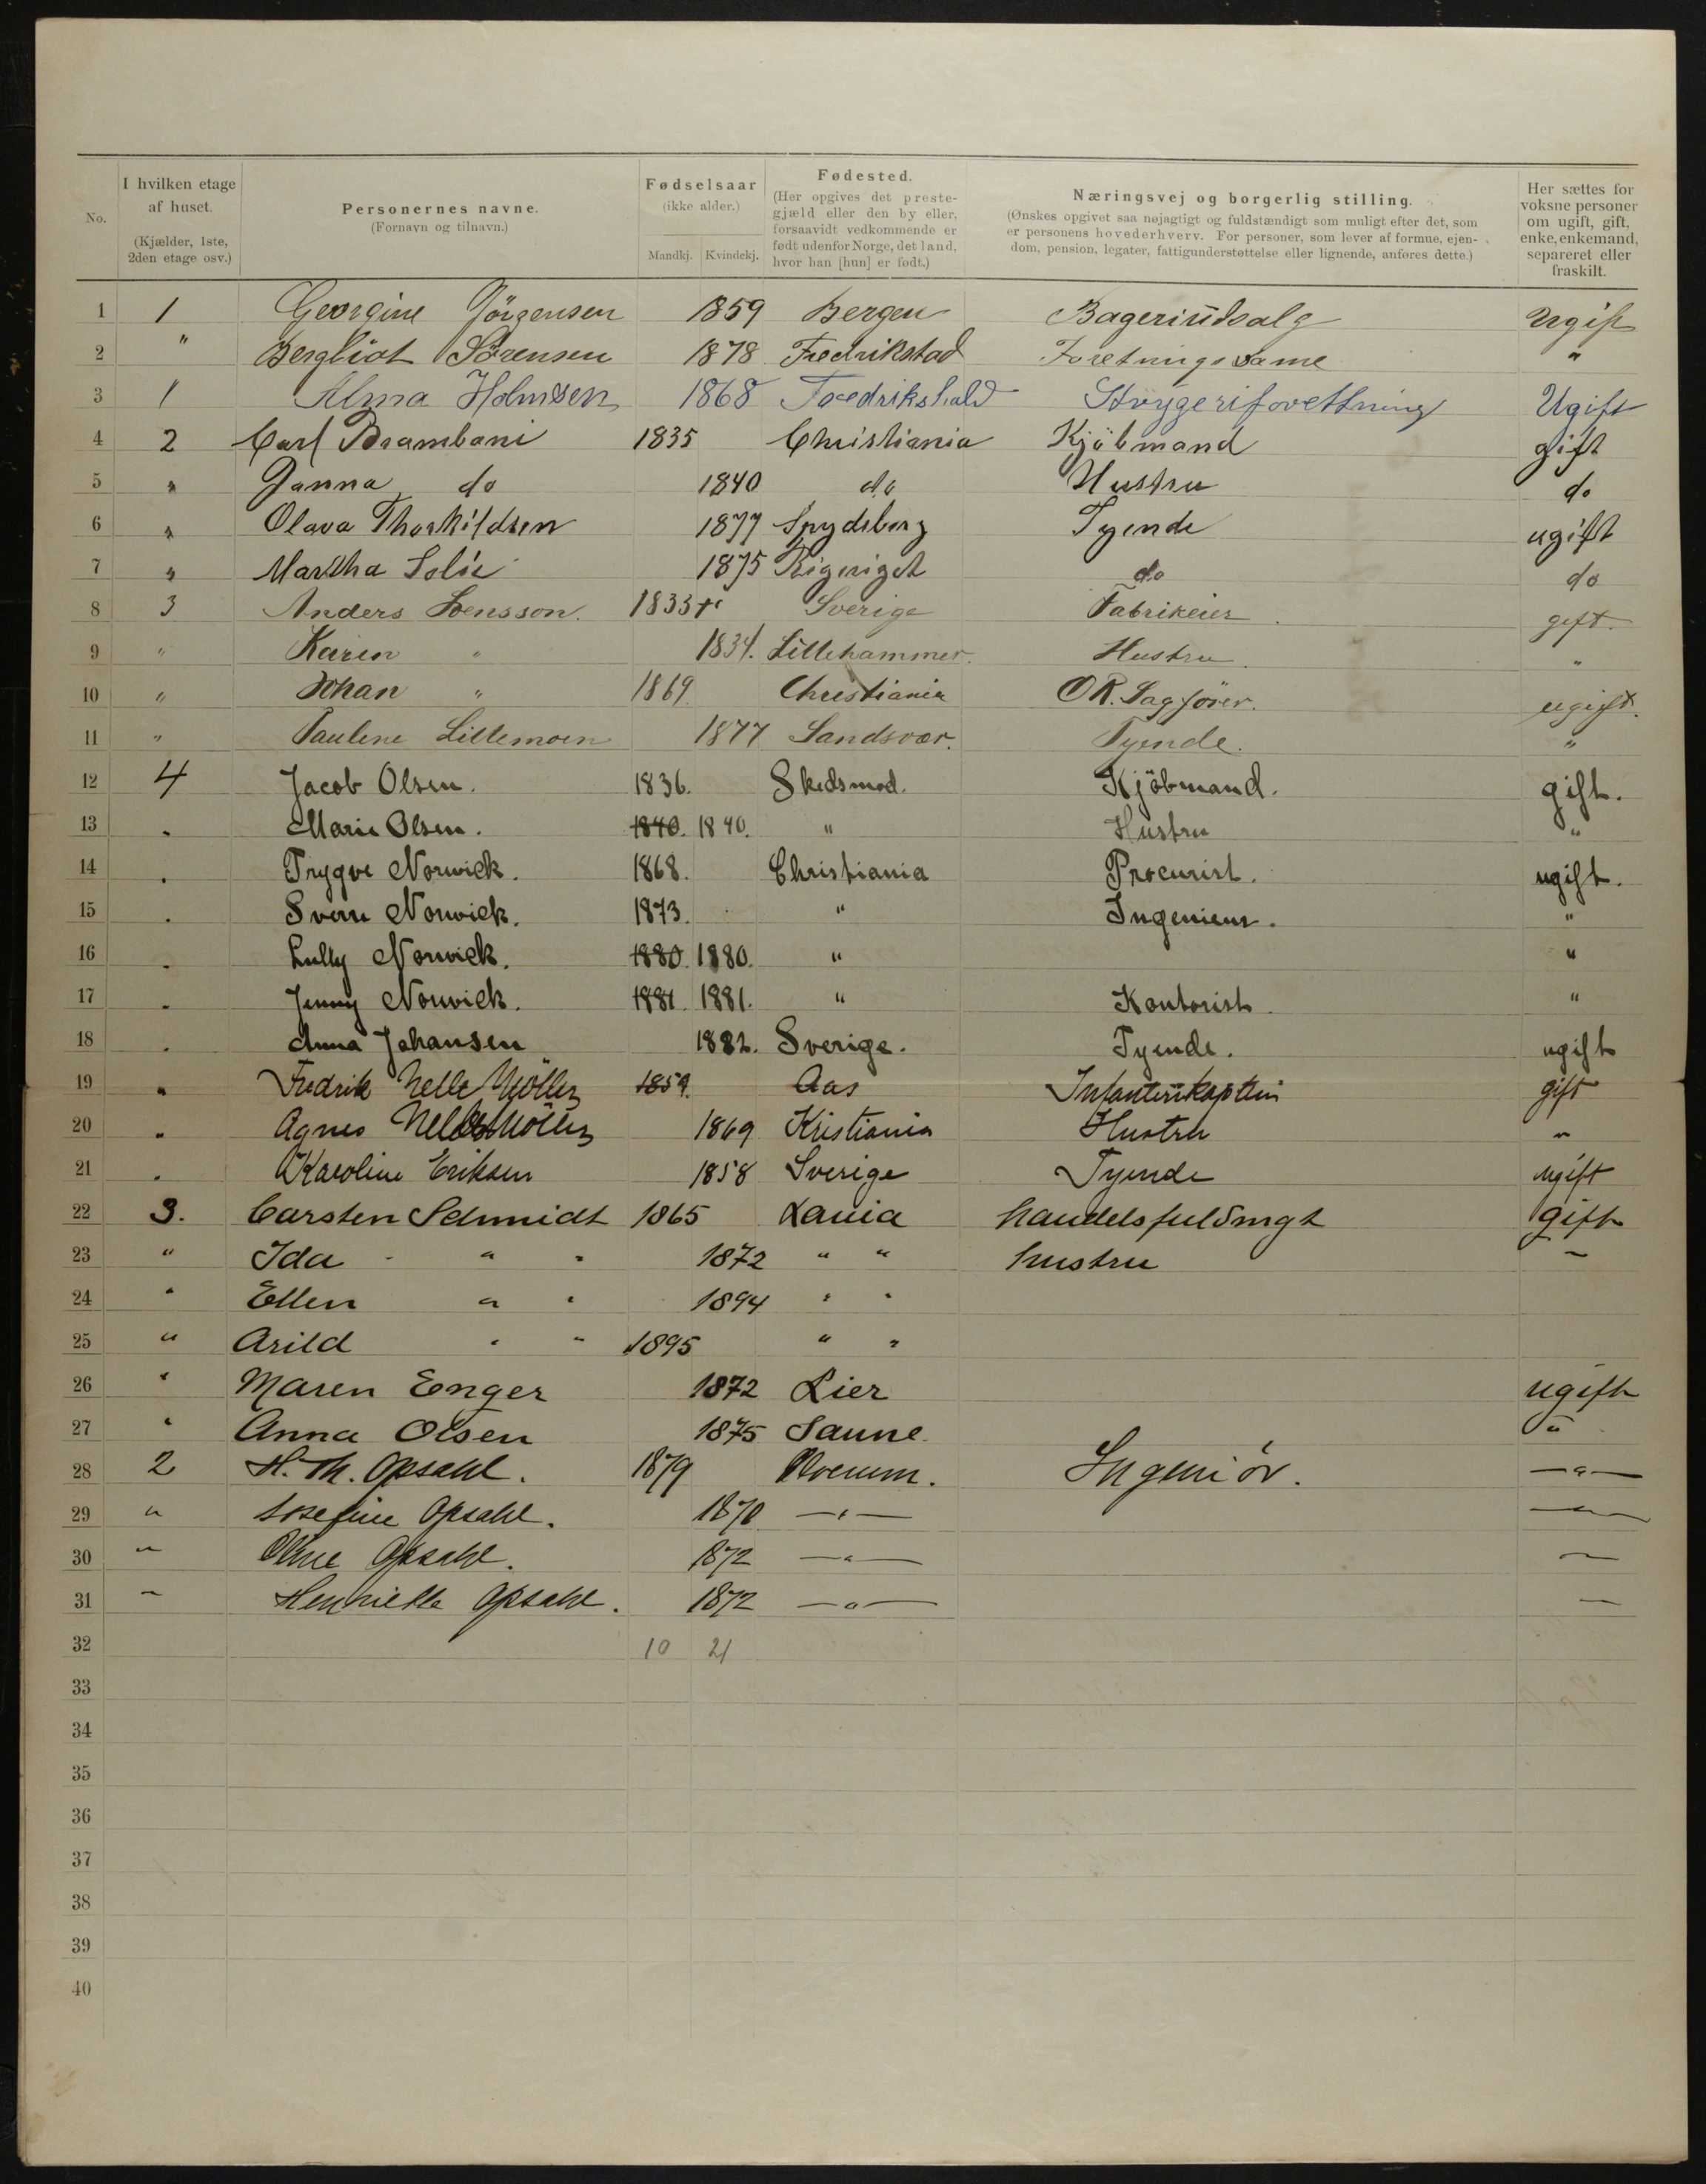 No. I hvilken etage af huset. (Kjælder, 1ste, 2den etage osv.) Personernes navne. (Fornavn og tilnavn.) Fødselsaar (ikke alder.) Mandkj. Kvindekj. Fødested. (Her opgives det prestegjæld eller den by eller, forsaavidt vedkommende er født udenfor Norge, det land, hvor han [hun] er født.) Næringsvej og borgerlig stilling. (Ønskes opgivet saa nøjagtigt og fuldstændigt som muligt efter det, som er personens hovederhverv. For personer, som lever af formue, ejendom, pension, legater, fattigunderstøttelse eller lignende, anføres dette.) Her sættes for voksne personer om ugift, gift, enke, enkemand, separeret eller fraskilt.
1 1 Georgine Jörgensen 1859 Bergen Bageriudsalg Ugift
2 " Bergliot Sörensen 1878 Fredrikstad Foretningsdame "
3 1 Alma Holmsen 1868 Fredrikshald Strygeriforettning Ugift
4 2 Carl Brambani 1835 Christiania Kjöbmand gift
5 " Janna do 1840 do Hustru do
6 " Olava Thorkildsen 1877 Spydeberg Tyende ugift
7 " Martha Solie 1875 Ringeriget do do
8 3 Anders Svensson. 1833 Sverige Fabrikeier gift.
9 " Karen " 1834. Lillehammer. Hustru. "
10 " Johan " 1869. Christiania O.R. Sagförer. ugift.
11 " Paulene Lillemoen 1877 Sandsvær. Tyende. "
12 4 Jacob Olsen. 1836. Skedsmod. Kjöbmand. gift.
13 . Marie Olsen. 1840. 1840. " Hustru "
14 . Trygve Norwick. 1868. Christiania Procurist. ugift.
15 . Sverre Norwick. 1873. " Ingenieur. "
16 . Lully Norwick. 1880. 1880. " "
17 . Jenny Norwick. 1881 1881. " Kontorist. "
18 . Anna Johansen 1882. Sverige. Tyende. ugift
19 " Fredrik Nelle Möller 1859. Aas Infanterikaptein gift
20 " Agnes Möller 1869 Kristiania Hustru "
21 . Karoline Eriksen 1858 Sverige Tyende ugift
22 3. Carsten Schmidt 1865 Xania handelsfuldmgt gift
23 " Ida " " 1872 " " hustru "
24 " Ellen " " 1894 " "
25 " Arild " " 1895 " "
26 " Maren Enger 1872 Lier ugift
27 " Anna Olsen 1875 Saune "
28 2 H. Th. Opsahl. 1879 Ingeniör. —"—
29 " Josefine Opsahl. 1870 —"— —"—
30 " Opsahl. 1872 —"— —
31 " Henriette Opsahl. 1872 —"— —
32 10 21
33
34
35
36
37
38
39
40